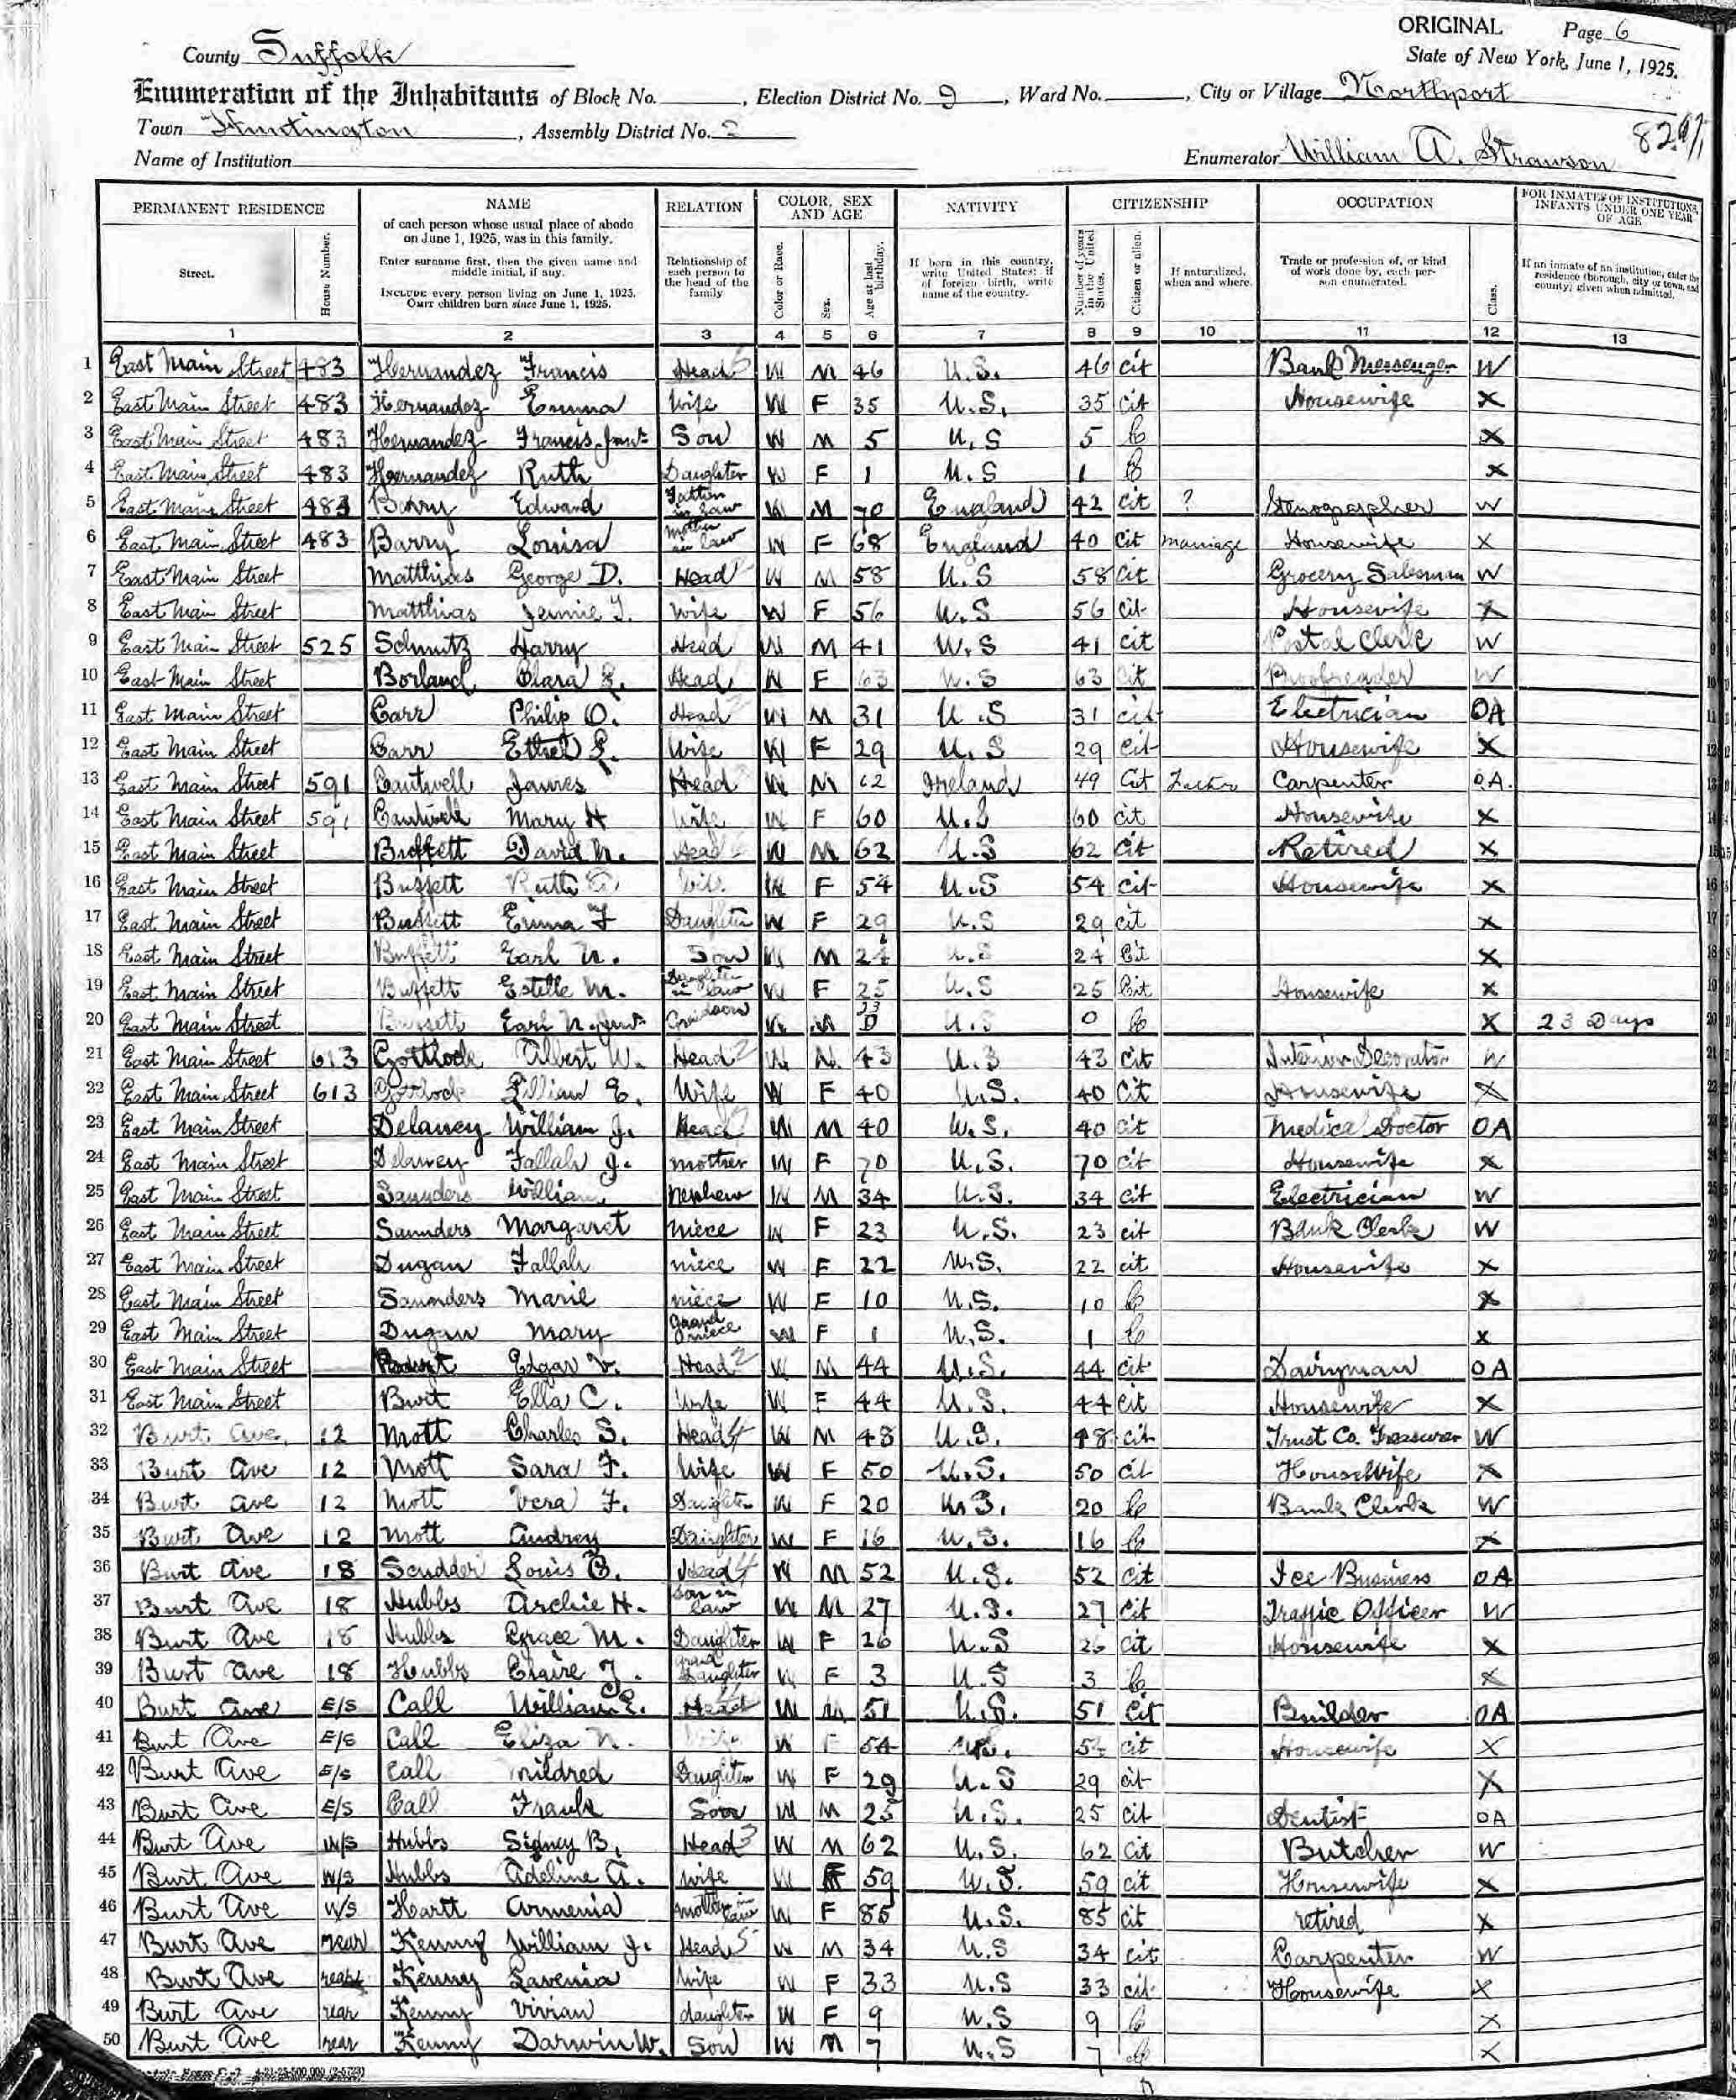 ORIGINAL Page 6
County Suffolk State of New York, June 1, 1925.
Enumeration of the Inhabitants of Block No. , Election District No. 9 , Ward No. , City or Village Northport
Town Huntington , Assembly District No. 2
Name of Institution Enumerator William A. Strawson
PERMANENT RESIDENCE NAME RELATION COLOR, SEX AND AGE NATIVITY CITIZENSHIP OCCUPATION FOR INMATES OF INSTITUTIONS, INFANTS UNDER ONE YEAR OF AGE
Street. House Number. of each person whose usual place of abode on June 1, 1925, was in this family. Enter surname first, then the given name and middle initial, if any. INCLUDE every person living on June 1, 1925. OMIT children born since June 1, 1925. Relationship of each person to the head of the family Color or Race. Sex. Age at last birthday. If born in this country, write United States; if of foreign birth, write name of the country. Number of years in the United States. Citizen or alien. If naturalized, when and where. Trade or profession of, or kind of work done by, each person enumerated. Class. If an inmate of an institution, enter the residence (borough, city or town, and county) given when admitted.
1 2 3 4 5 6 7 8 9 10 11 12 13
1 East Main Street 483 Hernandez Francis Head W M 46 U.S. 46 cit Bank Messenger W
2 East Main Street 483 Hernandez Emma Wife W F 35 U.S. 35 cit Housewife X
3 East Main Street 483 Hernandez Francis Son W M 5 U.S 5 C X
4 East Main Street 483 Hernandez Ruth Daughter W F 1 U.S 1 C X
5 East Main Street 483 Barry Edward Father in law W M 70 England 42 cit ? Stenographer W
6 East Main Street 483 Barry Louisa Mother in law W F 68 England 40 cit marriage Housewife X
7 East Main Street Matthias George D. Head W M 58 U.S 58 cit Grocery Salesman W
8 East Main Street Matthias Jennie T. Wife W F 56 U.S 56 cit Housewife X
9 East Main Street 525 Schmitz Harry Head W M 41 U.S 41 cit Postal Clerk W
10 East Main Street Borland Clara Head W F 63 U.S 63 cit Proofreader W
11 East Main Street Carr Philip O. Head W M 31 U.S 31 cit Electrician OA
12 East Main Street Carr Ethel Wife W F 29 U.S 29 cit Housewife X
13 East Main Street 591 Cantwell James Head W M 62 Ireland 49 cit Father Carpenter OA.
14 East Main Street 591 Cantwell Mary H Wife W F 60 U.S 60 cit Housewife X
15 East Main Street Buffett David N. Head W M 62 U.S 62 cit Retired X
16 East Main Street Buffett Ruth A Wife W F 54 U.S 54 cit Housewife X
17 East Main Street Buffett Emma F Daughter W F 29 U.S 29 cit X
18 East Main Street Buffett Earl N. Son W M 24 U.S 24 cit X
19 East Main Street Buffett Estelle M. Daughter in law W F 25 U.S 25 cit Housewife X
20 East Main Street Buffett Earl N. Grandson W M 0 U.S 0 C X 23 Days
21 East Main Street 613 Albert W. Head 2 W M 43 U.S 43 cit Interior Decorator W
22 East Main Street 613 Lillian E. Wife W F 40 U.S. 40 cit Housewife X
23 East Main Street Delaney William J. Head W M 40 U.S. 40 cit Medical Doctor OA
24 East Main Street Delaney Fallah J. mother W F 70 U.S. 70 cit Housewife X
25 East Main Street Saunders William nephew W M 34 U.S. 34 cit Electrician W
26 East Main Street Saunders Margaret niece W F 23 U.S. 23 cit Bank Clerk W
27 East Main Street Dugan Fallah niece W F 22 U.S. 22 cit Housewife X
28 East Main Street Saunders Marie niece W F 10 U.S. 10 C X
29 East Main Street Dugan Mary Grand niece W F 1 U.S. 1 C X
30 East Main Street Edgar V. Head 2 W M 44 U.S. 44 cit Dairyman OA
31 East Main Street Burt Ella C. Wife W F 44 U.S. 44 cit Housewife X
32 Burt Ave. 12 Mott Charles S. Head 4 W M 48 U.S. 48 cit Trust Co. Treasurer W
33 Burt Ave 12 Mott Sara F. Wife W F 50 U.S. 50 cit HouseWife X
34 Burt Ave 12 Mott Vera F. Daughter W F 20 U.S. 20 C Bank Clerk W
35 Burt Ave 12 Mott Audrey Daughter W F 16 U.S. 16 C X
36 Burt Ave 18 Scudder Louis B. Head 4 W M 52 U.S. 52 cit Ice Business OA
37 Burt Ave 18 Hubbs Archie H. Son in law W M 27 U.S. 27 cit Traffic Officer W
38 Burt Ave 18 Hubbs Grace M. Daughter W F 26 U.S 26 cit Housewife X
39 Burt Ave 18 Hubbs Claire J. Grand Daughter W F 3 U.S 3 C X
40 Burt Ave E/S Call William E. Head W M 51 U.S. 51 cit Builder OA
41 Burt Ave E/S Call Eliza N. Wife W F 54 U.S. 54 cit Housewife X
42 Burt Ave E/S Call Mildred Daughter W F 29 U.S 29 cit X
43 Burt Ave E/S Call Frank Son W M 25 U.S. 25 cit Dentist OA
44 Burt Ave W/S Hubbs Sidney B. Head 3 W M 62 U.S. 62 cit Butcher W
45 Burt Ave W/S Hubbs Adeline A. Wife W F 59 U.S. 59 cit Housewife X
46 Burt Ave W/S Hartt Armenia mother in law W F 85 U.S. 85 cit retired X
47 Burt Ave rear Kenny William J. Head 5 W M 34 U.S 34 cit Carpenter W
48 Burt Ave rear Kenney Lavenia Wife W F 33 U.S 33 cit Housewife X
49 Burt Ave rear Kenny Vivian daughter W F 9 U.S 9 C X
50 Burt Ave rear Kenny Darwin W. Son W M 7 U.S 7 C X